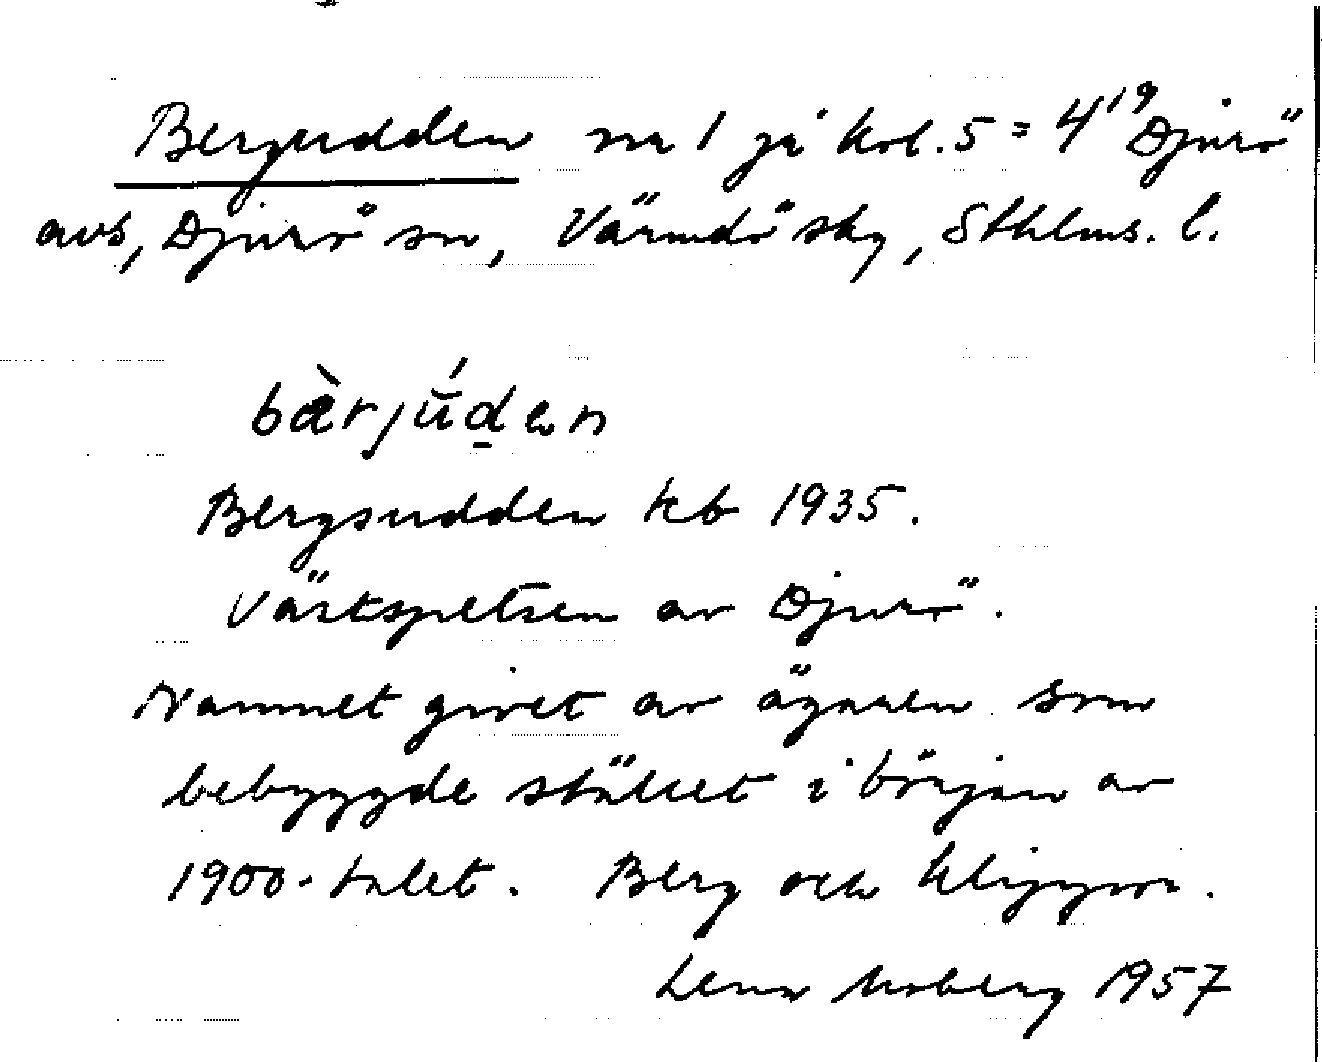 Bergudden nr 1 på kol. 5 = 4¹⁹ Djurö
avs, Djurö sn, Värmdö skg, Sthlms. l.
bæ̀rjúden
Bergsudden kb 1935.
Västspetsen av Djurö.
Namnet givet av ägaren som
bebyggde stället i början av
1900-talet. Berg och klippor.
Lena Moberg 1957